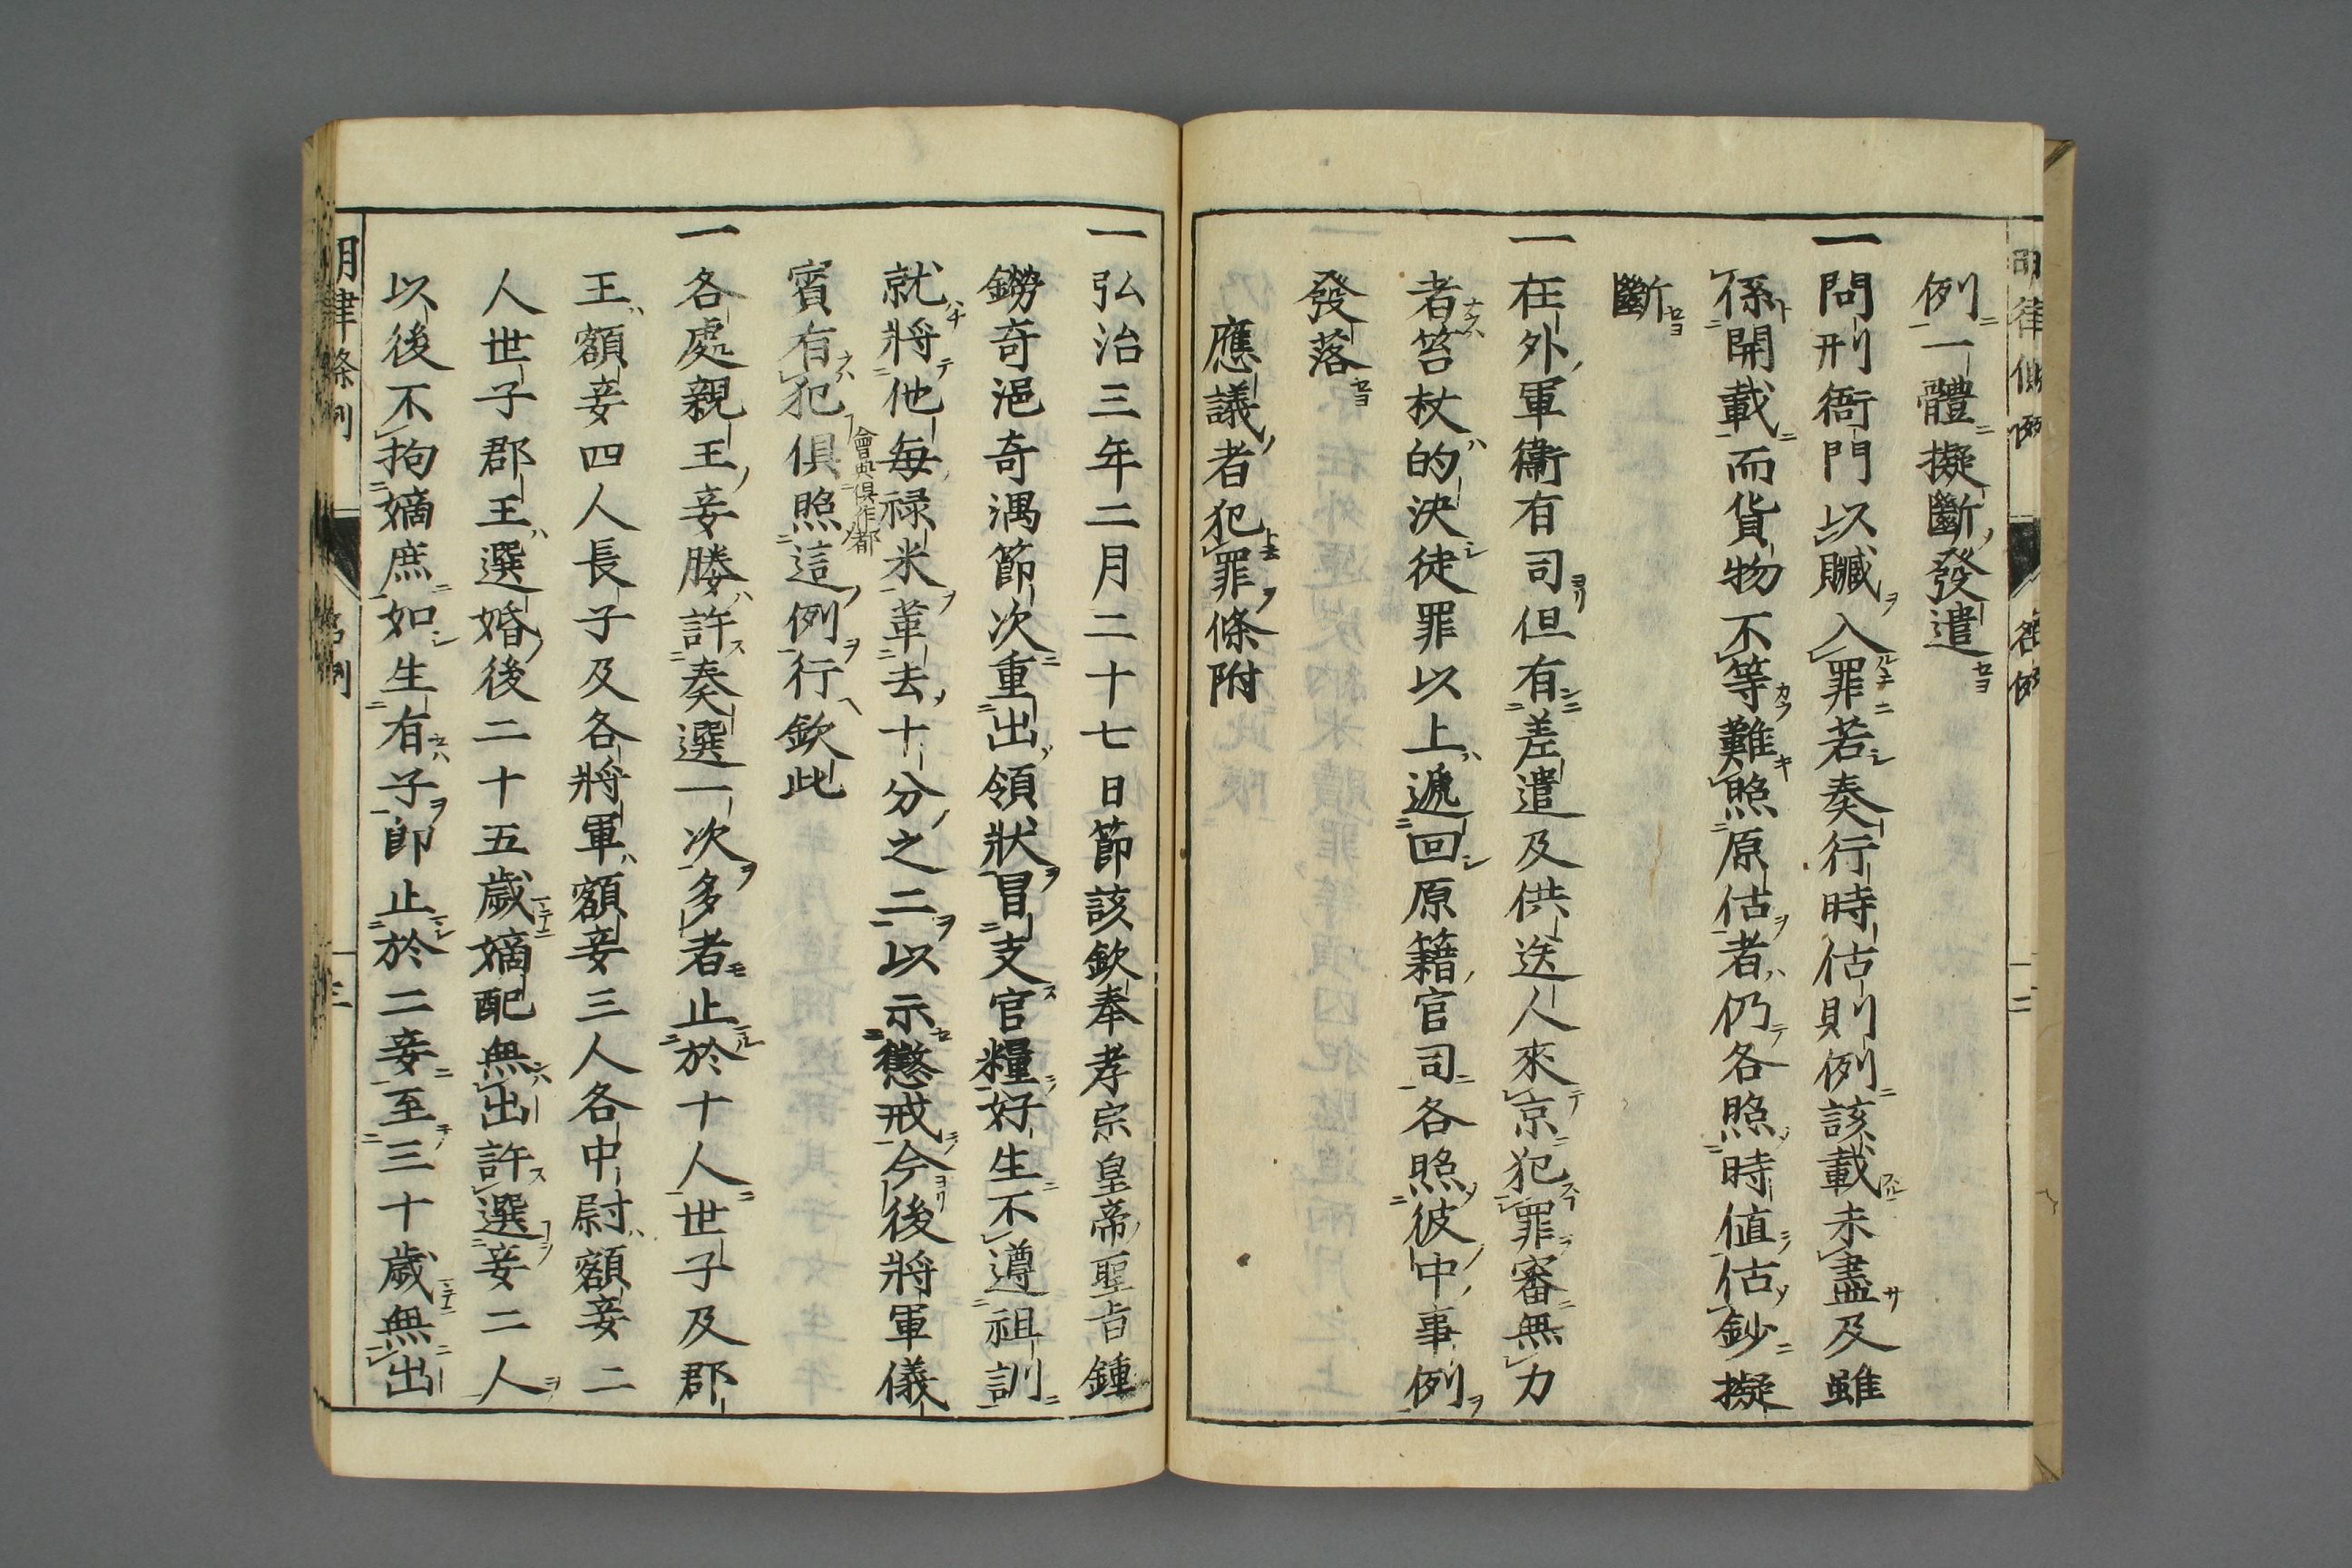 例一體擬斷發遣
一問刑衙門以贓入罪若奏行時估則例該載未盡及雖
係開載而貨物不等難照原估者仍各照時值估鈔擬
斷
一在外軍衞有司但有差遣及供送人來京犯罪審無力
者笞杖的決徒罪以上遞回原籍官司各照彼中事例
發落
應議者犯罪條附
一弘治三年二月二十七日節該欽奉孝宗皇帝聖旨鍾
鐒奇浥奇湡節次重出領狀冒支官糧好生不遵祖訓
就將他每祿米革去十分之二以示懲戒今後將軍儀
賓有犯俱照這例行欽此
會典俱作都
一各處親王妾媵許奏選一次多者止於十人世子及郡
王額妾四人長子及各將軍額妾三人各中尉額妾二
人世子郡王選婚後二十五歲嫡配無出許選妾二人
以後不拘嫡庶如生有子卽止於二妾至三十歲無出
明律條例 名例 十三